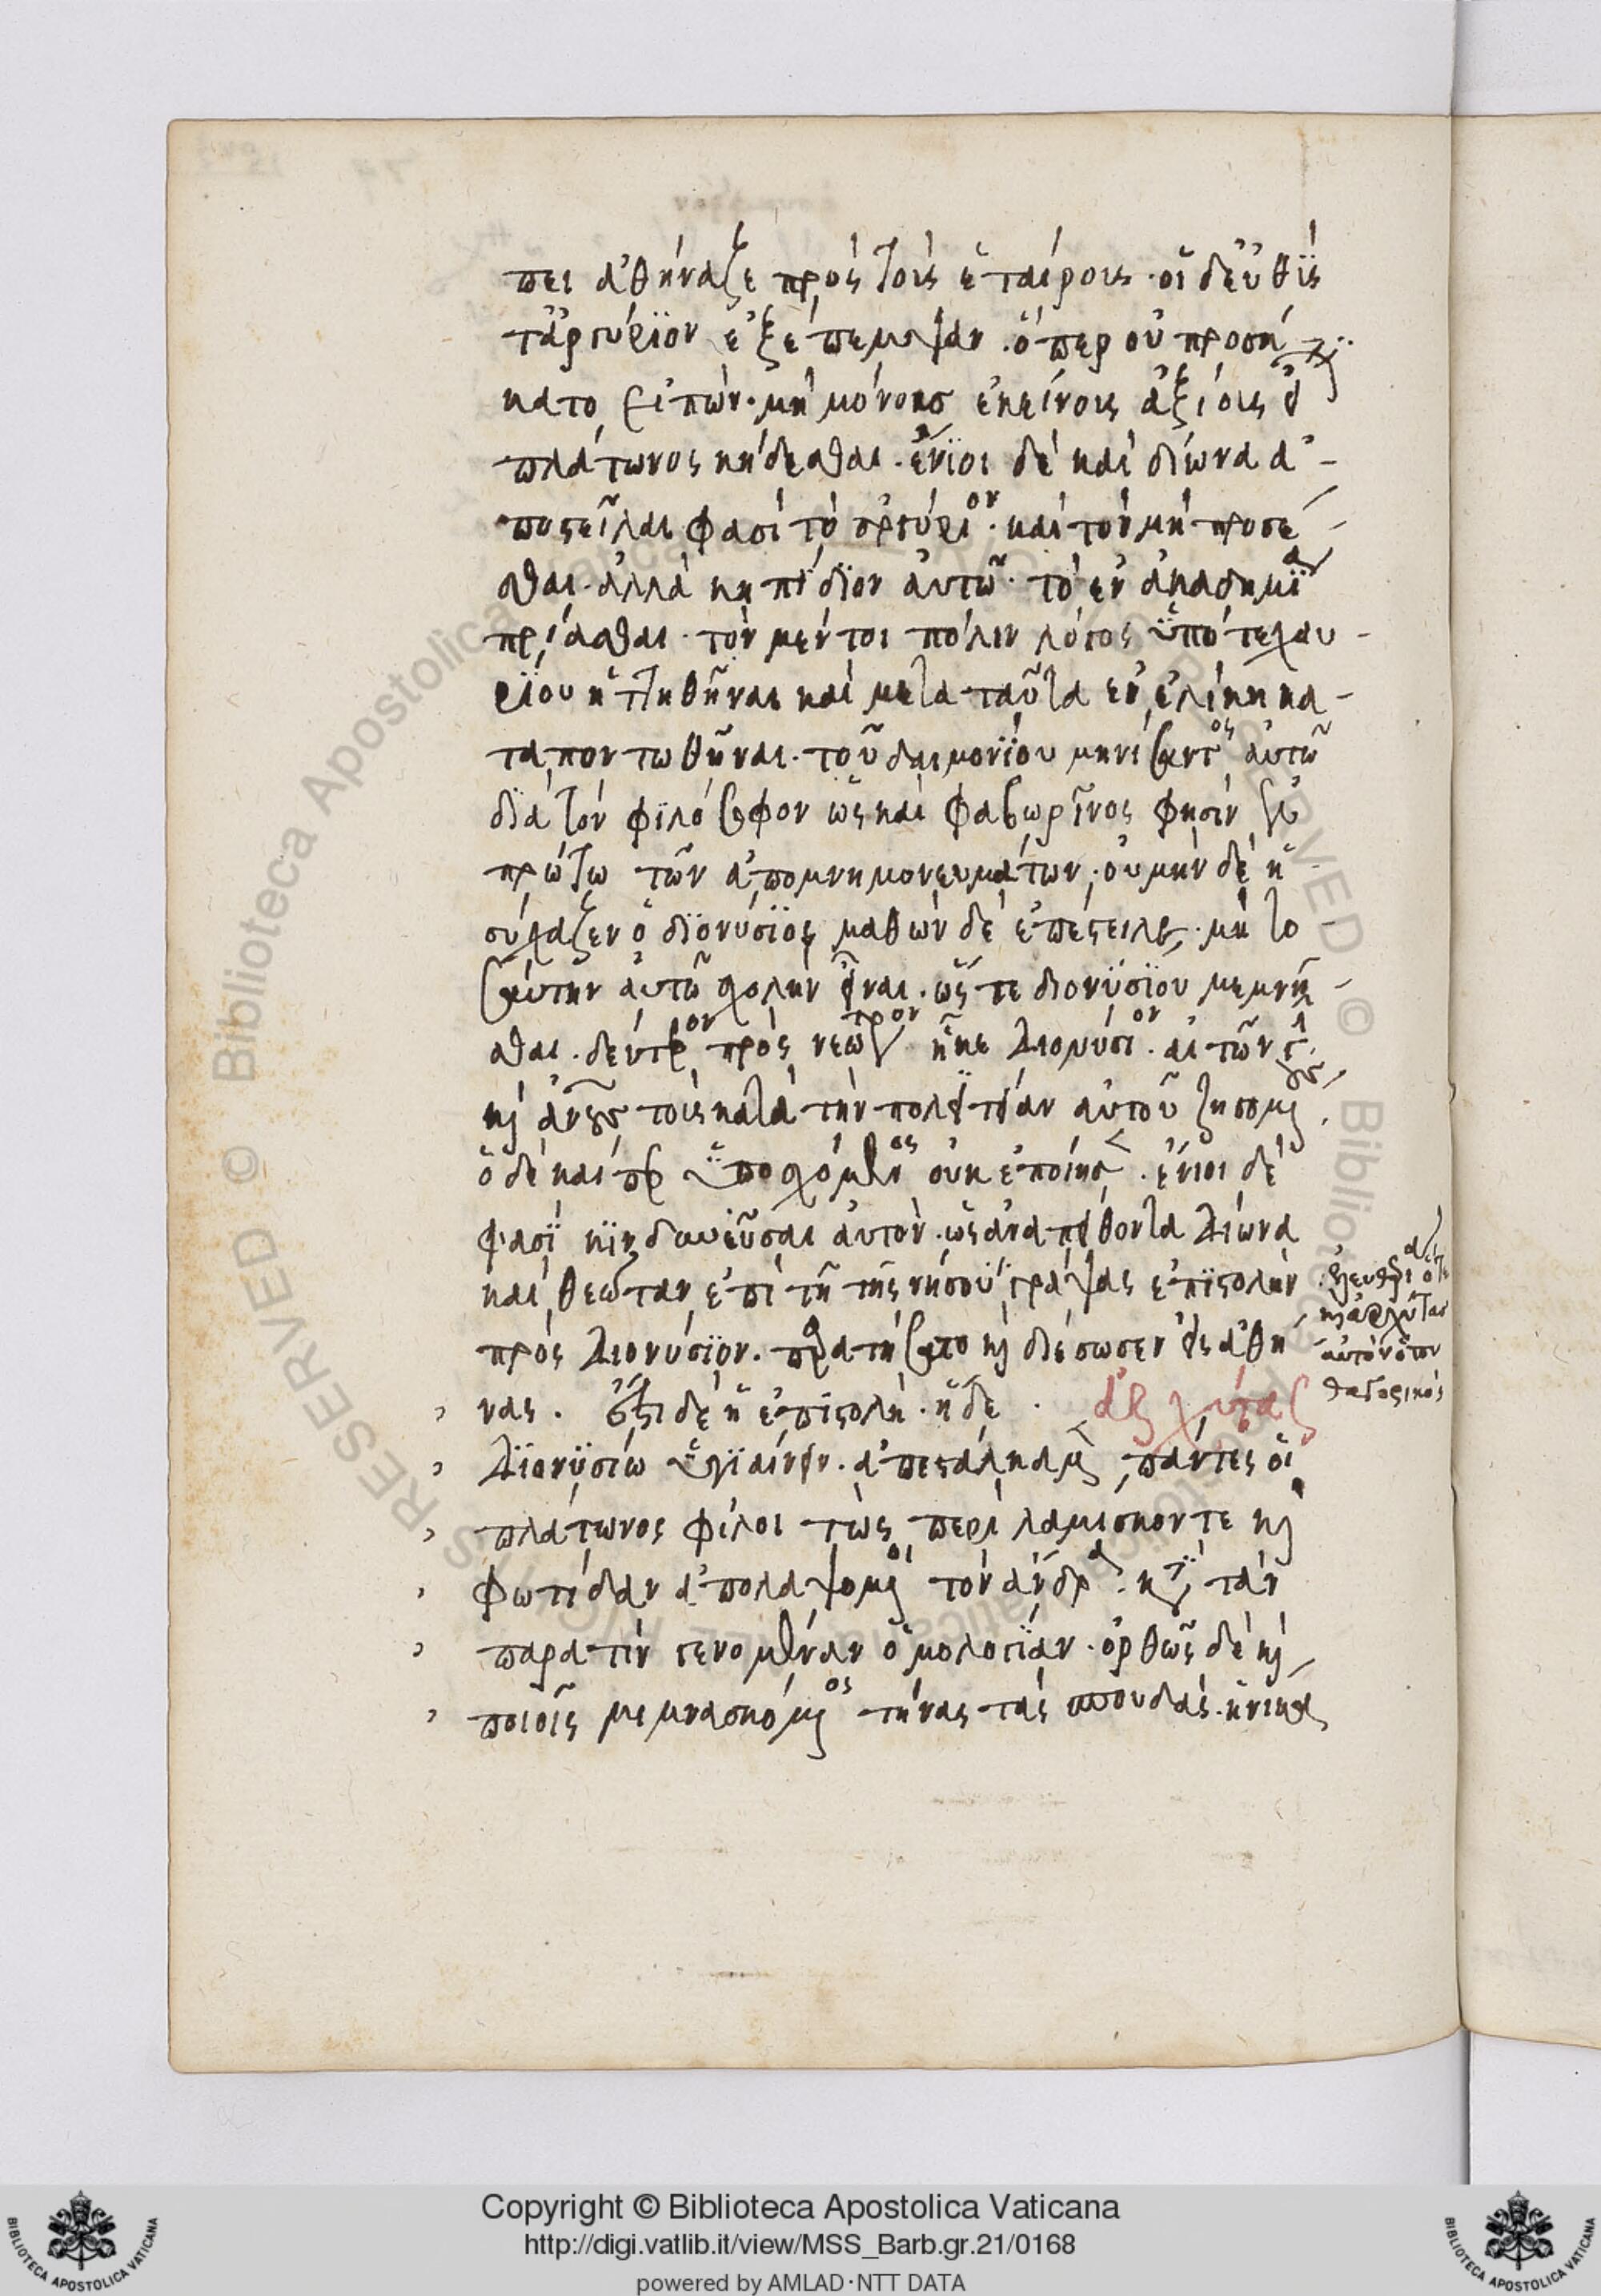 πει ἀθήναζε πρὸς τοὺς ἑταίρους · οἱ δ' εὐθὺς
τἀργύριον ἐξέπεμψαν · ὅπερ οὐ προσή
κατο εἰπὼν · μὴ μόνους ἐκείνους ἀξίους εἶ
πλάτωνος κήδεσθαι · ἔνιοι δὲ καὶ δίωνα ἀ-
ποστεῖλαι φασὶ τὸ ἀργύριον · καὶ τὸν μὴ προσέ-
σθαι · ἀλλὰ κηπίδιον αὐτῶ · τὸ ἐν ἀκαδημία
πρίασθαι · τὸν μέντοι πόλιν λόγος ὑπό τε χαυ-
ρίου ἡττηθῆναι καὶ μετὰ ταῦτα ἐν ἑλίκη κα-
ταποντωθῆναι · τοῦ δαιμονίου μηνίσαντος αὐτῶ
διὰ τὸν φιλόσοφον ὡς καὶ φαβωρῖνος φησὶν ἐν
πρώτω τῶν ἀπομνημονευμάτων · οὐ μὴν δὲ ἡ
σύχαζεν ὁ διονύσιος μαθὼν δὲ ἐπέστειλε · μὴ το-
σαύτην αὐτῶ σχολὴν εἶναι · ὥστε διονυσίου μεμνῆ-
σθαι · δεύτερον πρὸς νεώτερον ἧκε Διονύσιον · αἰτῶν γῆν
καὶ ἀνθρώπους τοὺς κατὰ τὴν πολιτείαν αὐτοῦ ζησομένους
ὁ δὲ καίπερ ὑποσχόμενος οὐκ ἐποίησεν · ἔνιοι δὲ
φασὶ κινδυνεῦσαι αὐτὸν · ὡς ἀναπείθοντα Δίωνα
καὶ θεώταν ἐπὶ τῆ τῆς νήσου γράψας ἐπιστολὴν
πρὸς Διονύσιον · παρητήσατο καὶ διέσωσεν εἰς ἀθή
νας · ἔστι δὲ ἡ ἐπιστολὴ · ἥδε · ἀρχύτας
Διονυσίω ὑγιαίνειν · ἀπεστάλκαμεν πάντες οἱ
πλάτωνος φίλοι τὼς περὶ λαμίσκον τε καὶ
Φωτίδαν ἀπολαψόμενοι τὸν ἄνδρα · κὴτ τὰν
παρὰ τὶν γενομέναν ὁμολογίαν · ὀρθῶς δὲ καὶ
ποιοῖς μιμνασκόμενος τήνας τὰς σπουδάς · ἡνίκα
ἐλευθερία ὅτε
καὶ ἀρχύτας
αὐτὸν ὁ πυ
θαγορικὸς